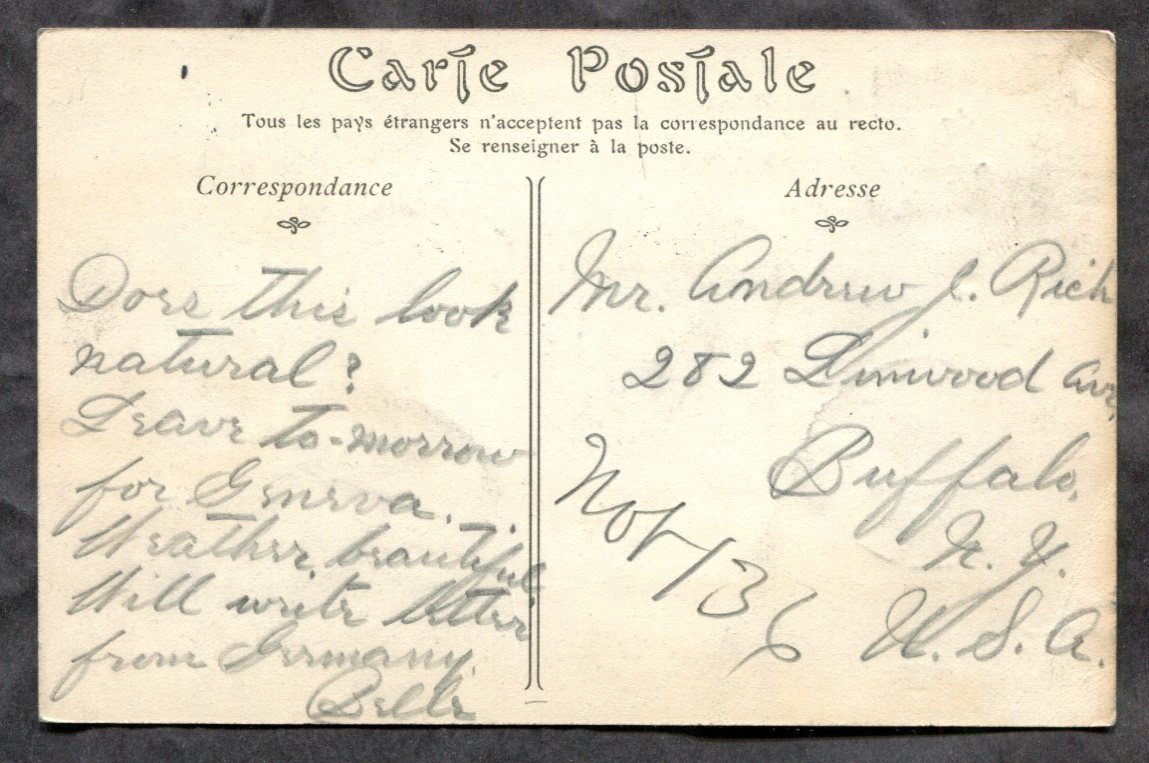 Carte Postale
Tous les pays étrangers n'acceptent pas la correspondance au recto.
Se renseigner à la poste.
Correspondance
Does this look
natural?
Leave to-morrow
for Geneva.
Weather beautiful.
Will write letter
from Germany.
Belle
Adresse
Mr. Andrew J. Rich
282 Linwood Ave,
Buffalo,
N. Y.
U. S. A.
136